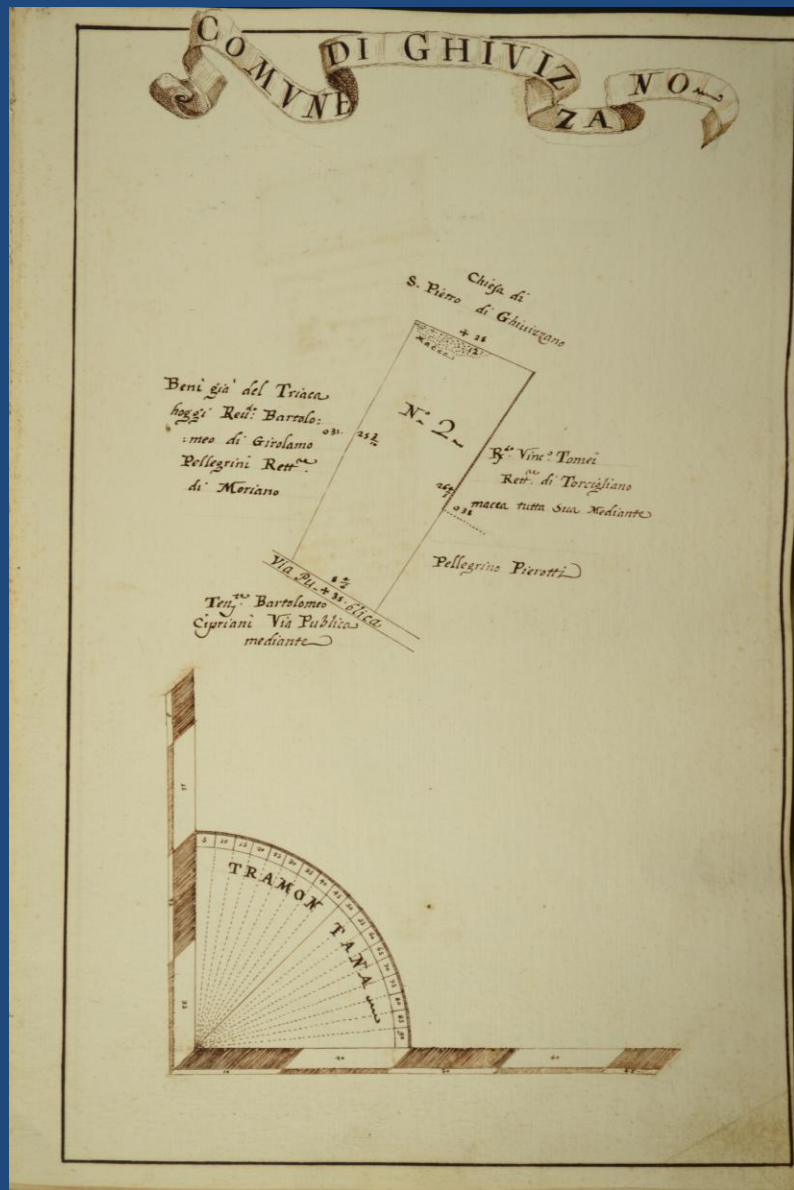 COMVNE DI GHIVIZZANO
Chiesa di
S. Pietro di Ghiuizzano
+ 26
12
macea
Beni già del Triaca
hoggi Reu.do Bartolo:
:meo di Girolamo
Pellegrini Rett.re
di Moriano
031
25
N.o 2
R.do Vinc.o Tomei
Rett.re di Torcigliano
macea tutta Sua Mediante
26
036
Pellegrino Pierotti
Via Pu + 35 blica
Ten.te Bartolomeo
Cipriani Via Publica
mediante
5 10 15 20 25 30 35 40 45 50 55 60 65 70 75 80 85 90
TRAMONTANA